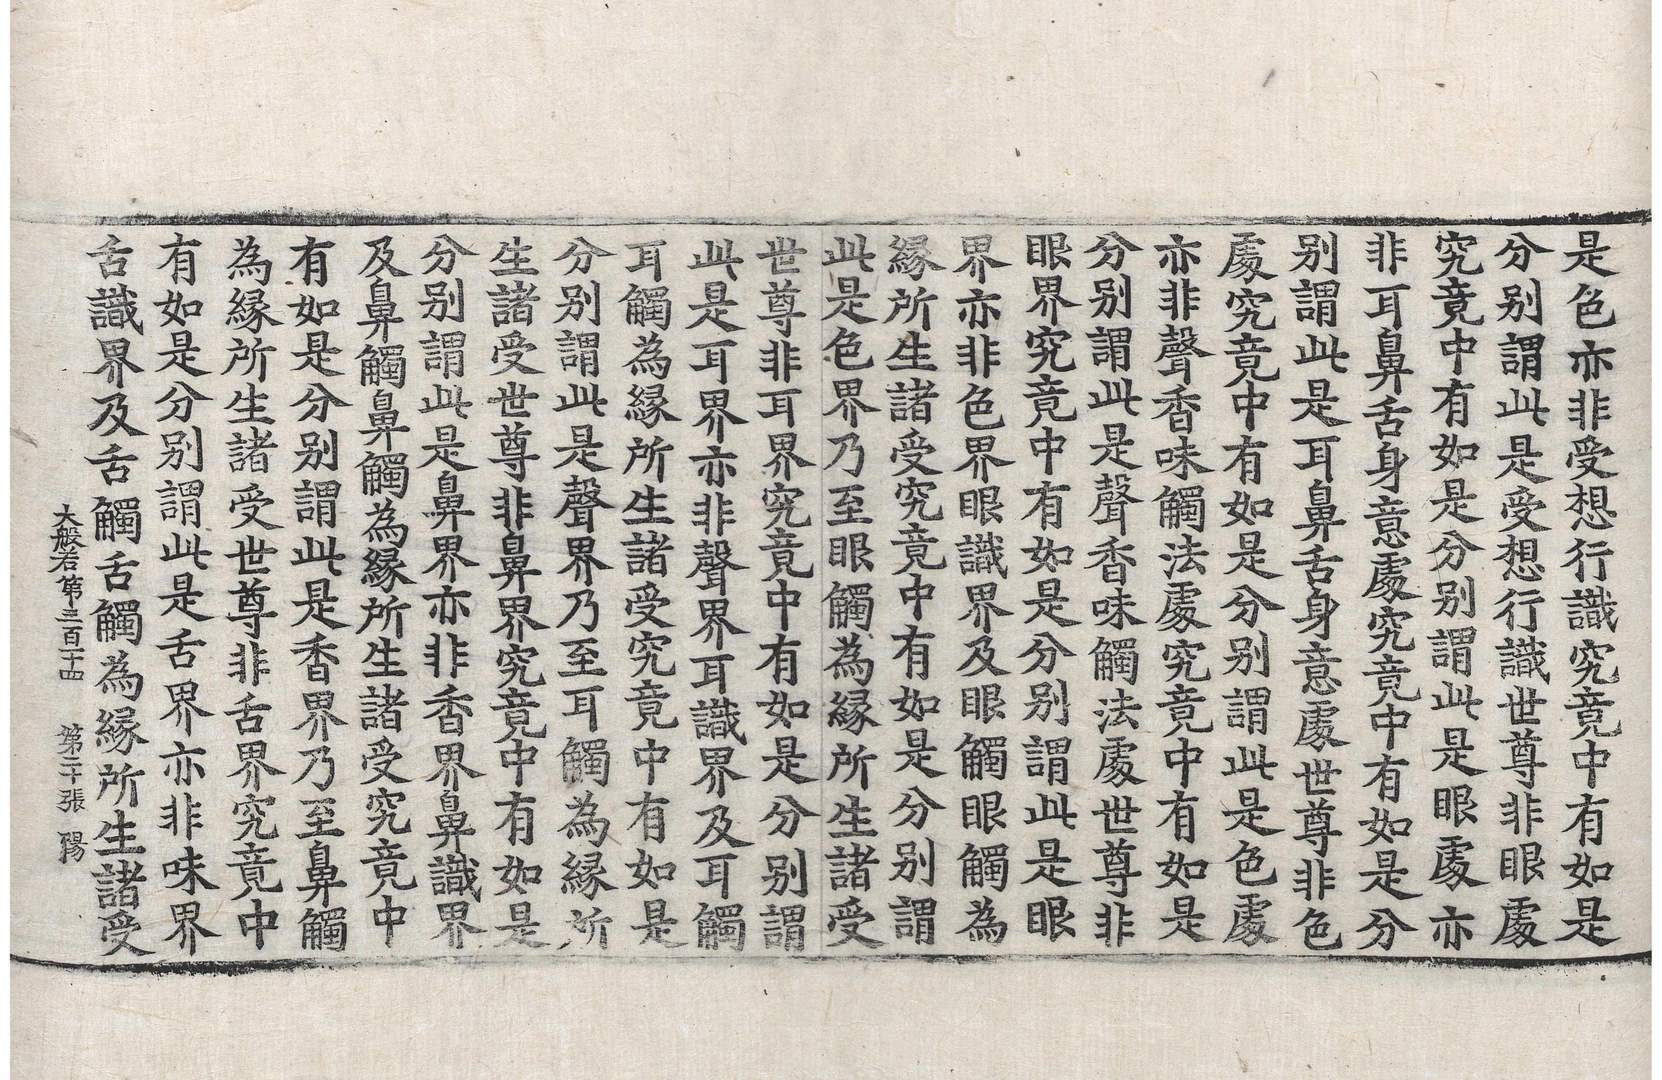 是色亦非受想行識究竟中有如是
分别謂此是受想行識世尊非眼處
究竟中有如是分别謂此是眼處亦
非耳鼻舌身意處究竟中有如是分
别謂此是耳鼻舌身意處世尊非色
處究竟中有如是分别謂此是色處
亦非聲香味觸法處究竟中有如是
分别謂此是聲香味觸法處世尊非
眼界究竟中有如是分别謂此是眼
界亦非色界眼識界及眼觸眼觸為
緣所生諸受究竟中有如是分别謂
此是色界乃至眼觸為緣所生諸受
世尊非耳界究竟中有如是分别謂
此是耳界亦非聲界耳識界及耳觸
耳觸為緣所生諸受究竟中有如是
分别謂此是聲界乃至耳觸為緣所
生諸受世尊非鼻界究竟中有如是
分别謂此是鼻界亦非香界鼻識界
及鼻觸鼻觸為緣所生諸受究竟中
有如是分别謂此是香界乃至鼻觸
為緣所生諸受世尊非舌界究竟中
有如是分别謂此是舌界亦非味界
舌識界及舌觸舌觸為緣所生諸受
大般若第三百十四 第二十張 陽